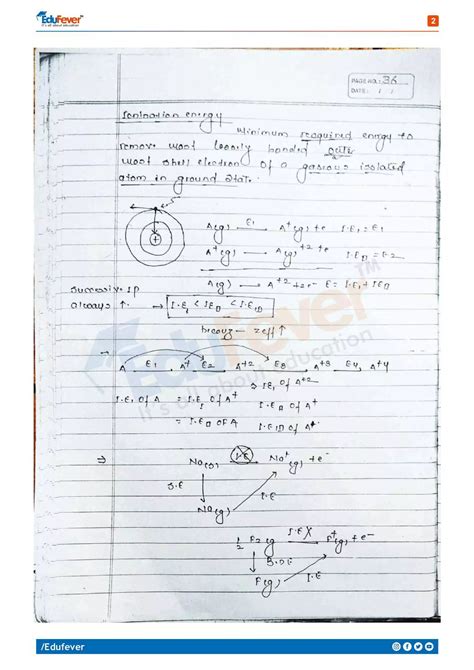 EduFever
It's all about education
2
PAGE NO.: 36
DATE: / /
Ionisation energy
Minimum reacquired energy to
remove most loosly bonded outer
most shell electron of a gasious isolated
atom in ground state.
+
A(g) E1→ A⁺(g) + e I.E1 = E1
A⁺(g) → A⁺²(g) + e I.EII = E2
A(g) → A⁺² + 2e⁻ E = I.E1 + IEII
successive IP
always ↑ → I.E1 < IEII < IEIII
EduFever™
It's all about education
becouz - zeff ↑
→
A E1 A⁺ E2 A⁺² E3 A⁺³ E4 A⁺4
I.E1 of A = I.E1 of A⁺ I.E1 of A⁺²
= I.EII of A I.EII of A⁺
I.EIII of A
⇒ Na(s) I.E Na⁺(g) + e⁻
S.E
Na(g) I.E
1/2 F2(g) I.E X F⁺(g) + e⁻
B.D.E
F(g) I.E
/Edufever